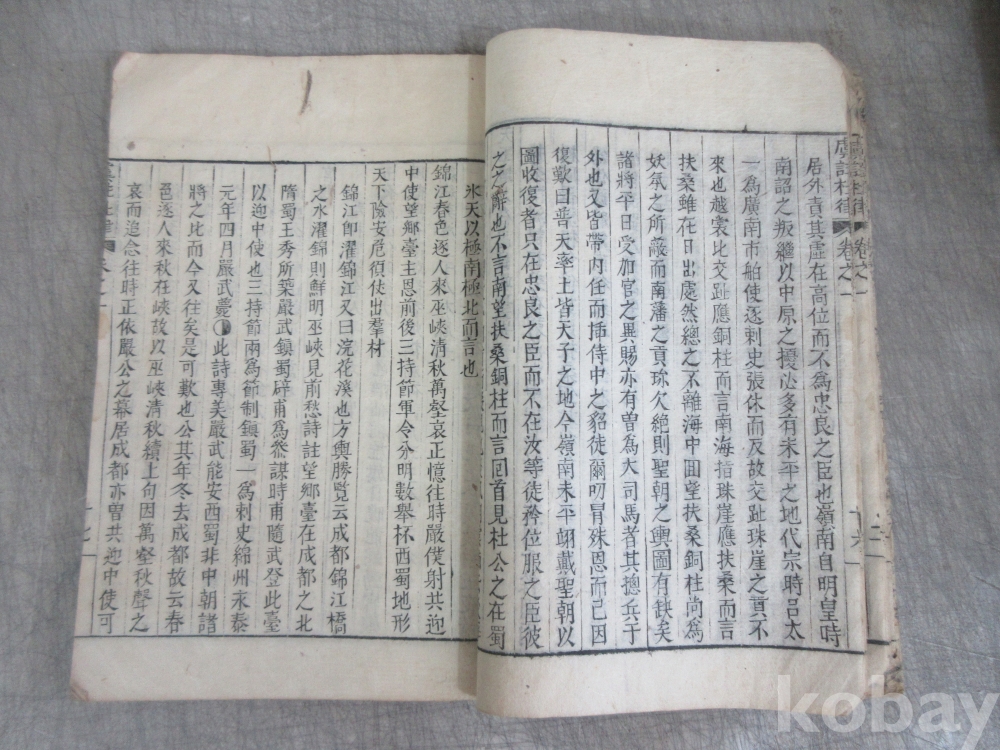 虞註杜律 卷之一
居外責其虛在高位而不為忠良之臣也嶺南自明皇時
南詔之叛繼以中原之擾必多有未平之地代宗時呂太
一為廣南市舶使逐刺史張休而反故交趾珠崖之貢不
來也越裳比交趾應銅柱而言南海指珠崖應扶桑而言
扶桑雖在日出處然總之不離海中回望扶桑銅柱尚為
妖氛之所蔽而南藩之貢珎欠絕則聖朝之輿圖有缺矣
諸將平日受加官之異賜亦有曽為大司馬者其摠兵于
外也又皆帶內任而揷侍中之貂徒爾叨冒殊恩而已因
復歎曰普天率土皆天子之地今嶺南未平翊戴聖朝以
圖收復者只在忠良之臣而不在汝等徒矜位服之臣彼
之辭也不言南望扶桑銅柱而言回首見杜公之在蜀
氷天以極南極北而言也
錦江春色逐人來巫峽清秋萬壑哀正憶往時嚴僕射共迎
中使望鄉臺主恩前後三持節軍令分明數舉杯西蜀地形
天下險安危須仗出羣材
錦江即濯錦江又曰浣花溪也方輿勝覽云成都錦江橋
之水濯錦則鮮明巫峽見前愁詩註望鄉臺在成都之北
隋蜀王秀所築嚴武鎮蜀辟甫為叅謀時甫隨武登此臺
以迎中使也三持節兩為節制鎮蜀一為刺史綿州來泰
元年四月嚴武薨此詩專美嚴武能安西蜀非中朝諸
將之比而今又往矣是可歎也公其年冬去成都故云春
邑逐人來秋在峽故以巫峽清秋續上句因萬壑秋聲之
哀而追念往時正依嚴公之幕居成都亦曽共迎中使可
十七
kobay